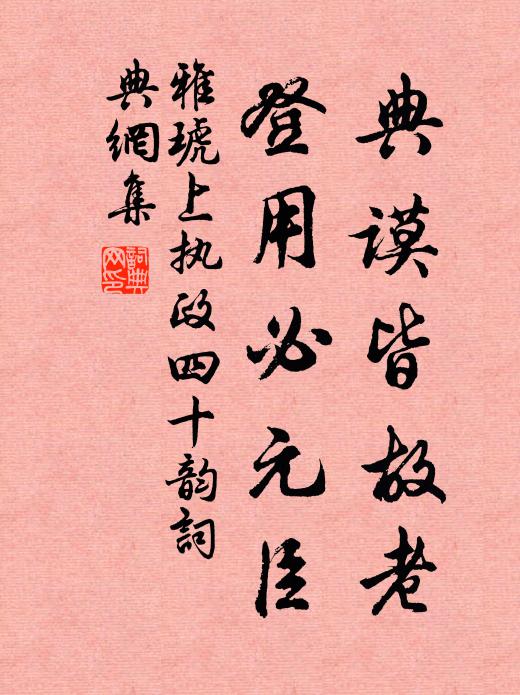 典谟皆故老
登用必元臣
雅琥上执政四十韵詞
典網集
詞典
网印